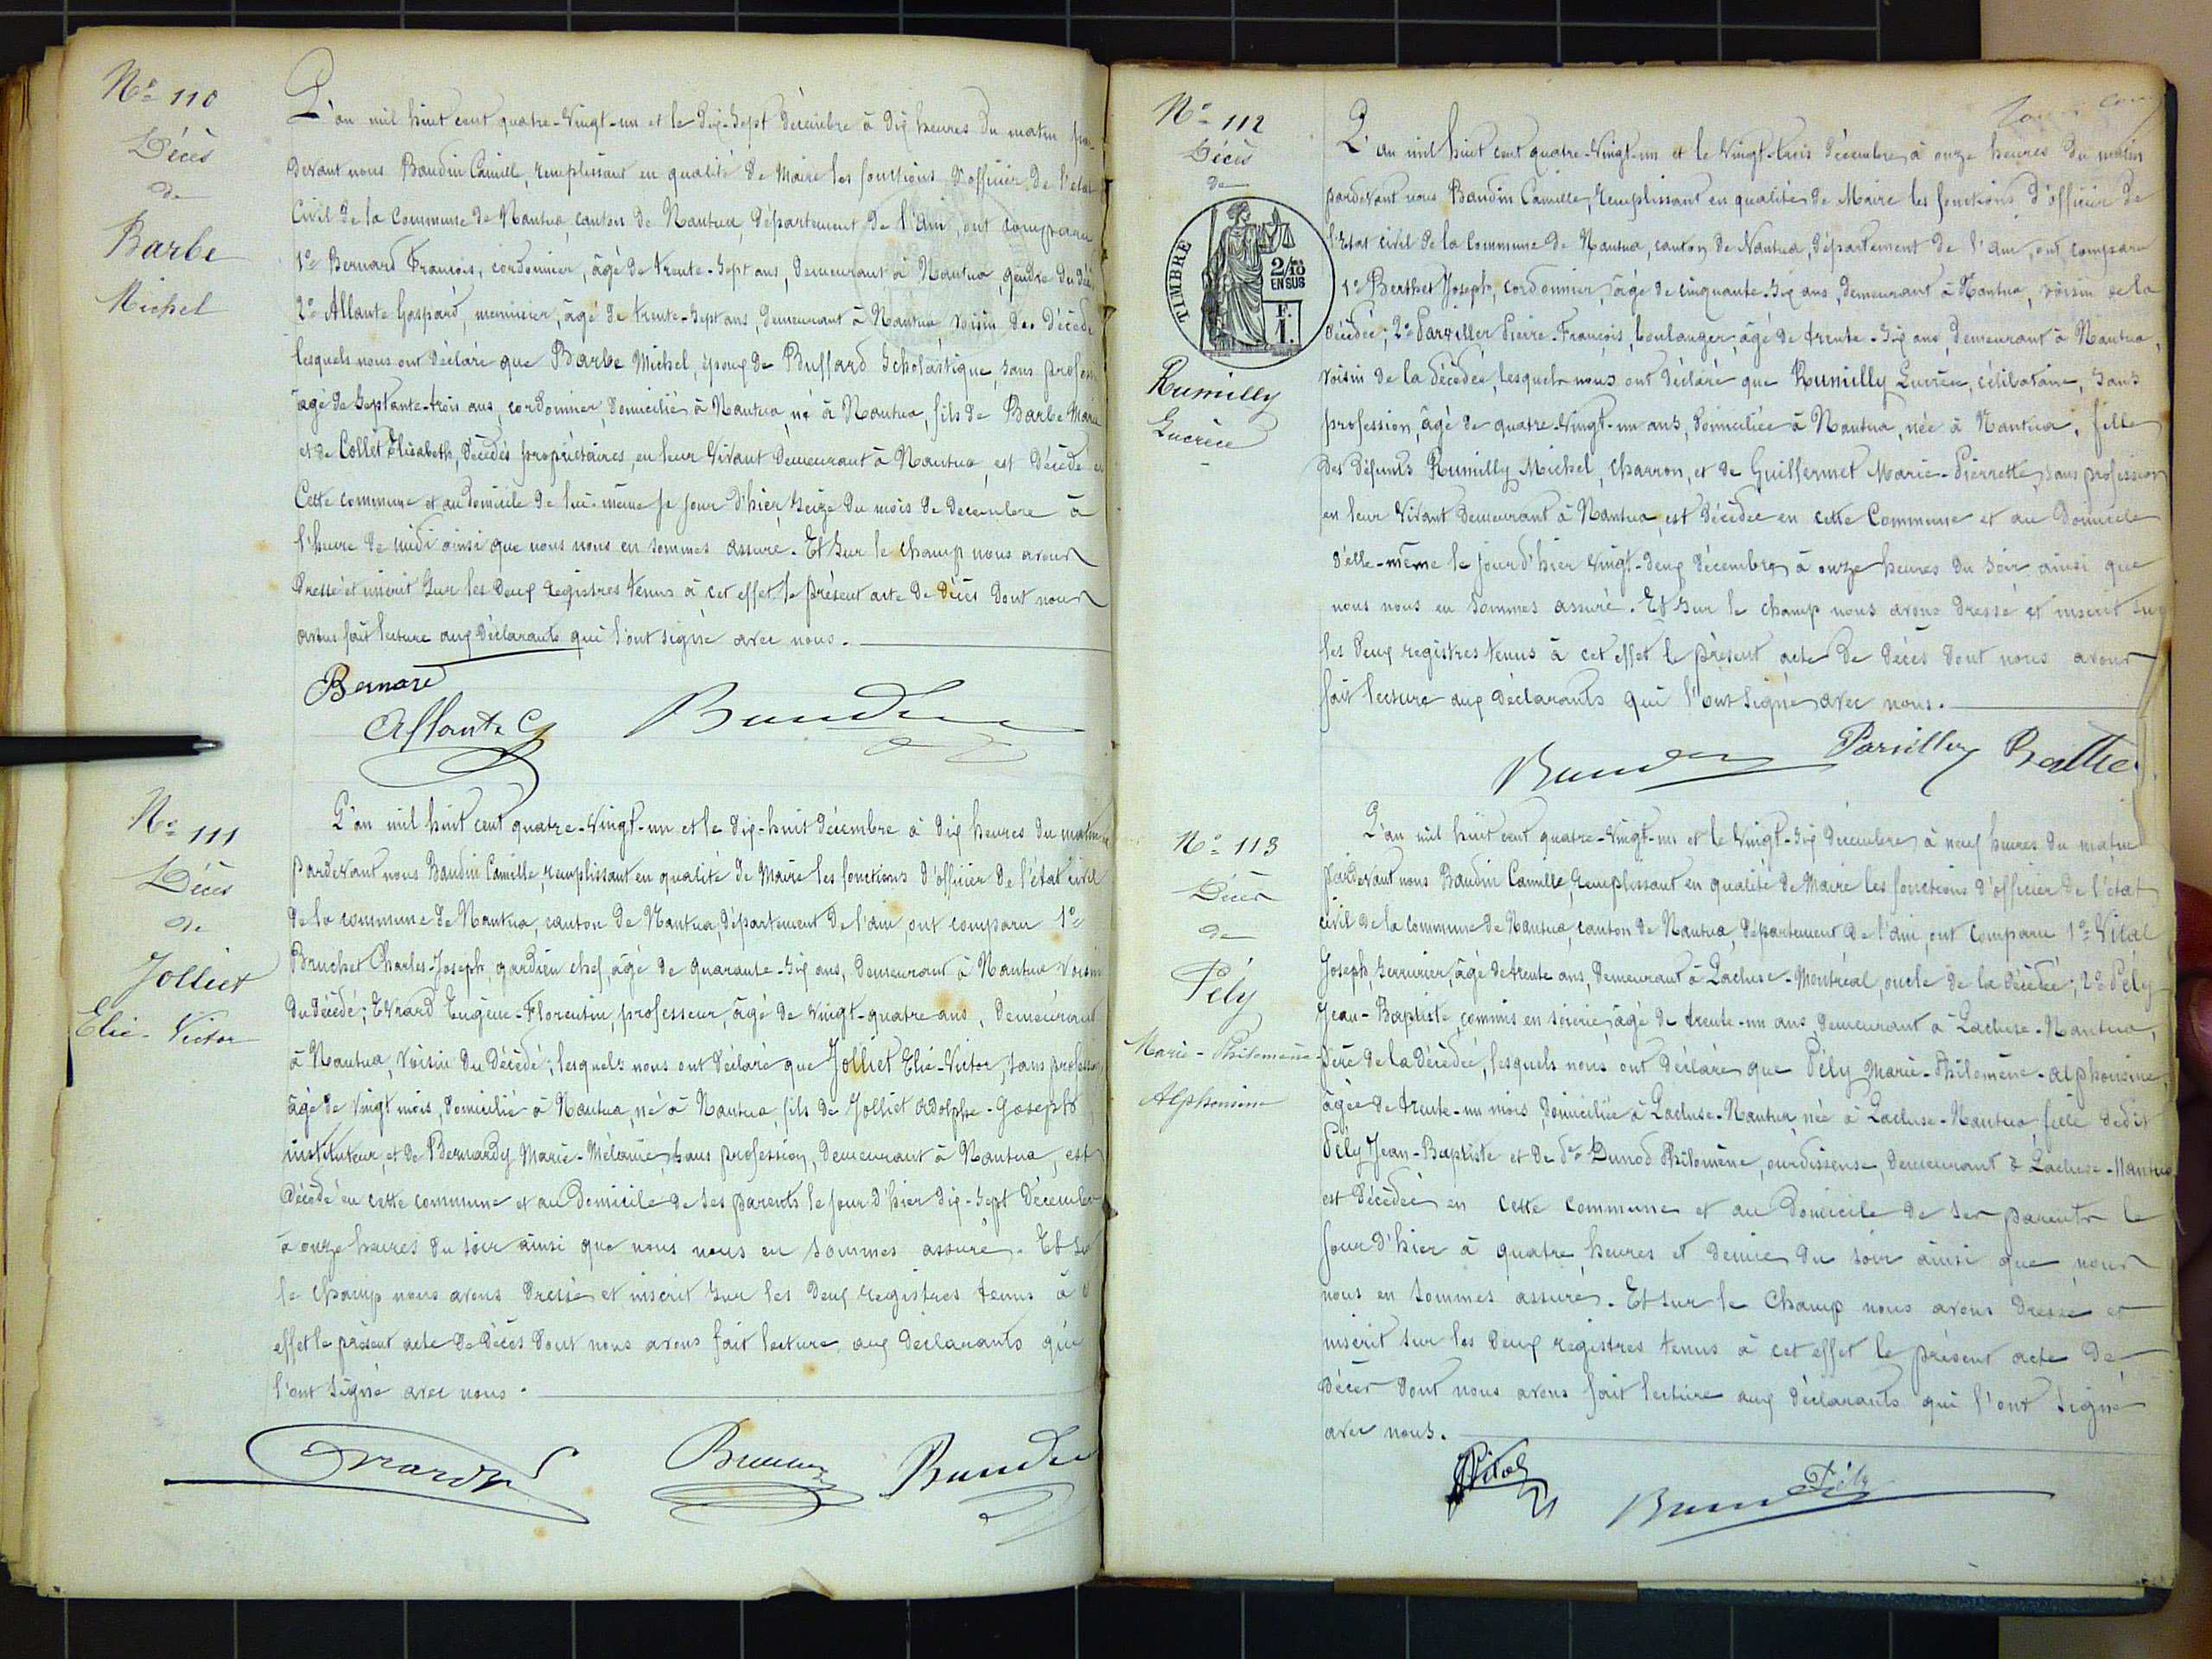 No 110
Décès
de
Barbe
Michel
L'an mil huit cent quatre-vingt-un et le dix-sept décembre à dix heures du matin par-
devant nous Baudin Camille, remplissant en qualité de Maire les fonctions d'officier de l'état
civil de la Commune de Nantua, canton de Nantua, département de l'ain, ont comparu
1o Bernard François, cordonnier, âgé de trente-sept ans, demeurant à Nantua, gendre du déc
2o Allante Gaspard, menuisier, âgé de trente-sept ans, demeurant à Nantua voisin du décédé
lesquels nous ont déclaré que Barbe Michel, époux de Buffard Scholastique, sans profession
âgé de septante-trois ans, cordonnier, domicilié à Nantua, né à Nantua, fils de Barbe Marie
et de Collet Elisabeth, décédés propriétaires, en leur vivant demeurant à Nantua, est décédé en
Cette commune et au domicile de lui-même le jour d'hier seize du mois de decembre à
l'heure de midi ainsi que nous nous en sommes assuré. Et sur le champ nous avons
dressé et inscrit sur les deux registres tenus à cet effet le présent acte de décès dont nous
avons fait lecture aux déclarants qui l'ont signé avec nous.
Bernard
Allante G
Baudin
No 111
Décès
de
Jolliet
Elie-Victor
L'an mil huit cent quatre-vingt-un et le dix-huit décembre à dix heures du matin
pardevant nous Baudin Camille, remplissant en qualité de Maire les fonctions d'officier de l'état civil
de la commune de Nantua, canton de Nantua, département de l'ain, ont comparu 1o
Bruchet Charles-Joseph, gardien chef, âgé de quarante-six ans, demeurant à Nantua voisin
du décédé; Evrard Eugène-Florentin, professeur, âgé de vingt-quatre ans, demeurant
à Nantua, voisin du décédé; lesquels nous ont déclaré que Jolliet Elie-Victor, sans profession
âgé de vingt mois, domicilié à Nantua, né à Nantua, fils de Jolliet Adolphe-Joseph
instituteur, et de Bernardy Marie-Mélanie, sans profession, demeurant à Nantua, est
décédé en cette commune et au domicile de ses parents le jour d'hier dix-sept décembre
à onze heures du soir ainsi que nous nous en sommes assuré. Et sur
le champ nous avons dressé et inscrit sur les deux registres tenus à c
effet le présent acte de décès dont nous avons fait lecture aux déclarants qui
l'ont signé avec nous.
Evrard
Baudin
No 112
Décès
de
TIMBRE
2/10es
EN SUS
F.
1.
Rumilly
Lucrèce
L'an mil huit cent quatre-vingt-un et le vingt-trois décembre à onze heures du matin
pardevant nous Baudin Camille, remplissant en qualité de Maire les fonctions d'officier de
l'état civil de la Commune de Nantua, canton de Nantua, département de l'ain, ont comparu
1o Berthet Joseph, cordonnier, âgé de cinquante-six ans, demeurant à Nantua, voisin de la
décédée; 2o Parviller Pierre-François, boulanger, âgé de trente-six ans, demeurant à Nantua,
voisin de la décédée, lesquels nous ont déclaré que Rumilly Lucrèce, célibataire, sans
profession, âgé de quatre-vingt-un ans, domiciliée à Nantua, née à Nantua, fille
des défunts Rumilly Michel, charron, et de Guillermet Marie-Pierrette, sans profession
en leur vivant demeurant à Nantua, est décédée en cette Commune et au domicile
d'elle-même le jour d'hier vingt-deux décembre à onze heures du soir ainsi que
nous nous en sommes assuré. Et sur le champ nous avons dressé et inscrit sur
les deux registres tenus à cet effet le présent acte de décès dont nous avons
fait lecture aux déclarants qui l'ont signé avec nous.
Baudin
Parviller
Berthet
No 113
Décès
de
Pély
Marie-Philomène-
Alphonsine
L'an mil huit cent quatre-vingt-un et le vingt-six décembre à neuf heures du matin
pardevant nous Baudin Camille, remplissant en qualité de Maire les fonctions d'officier de l'état
civil de la commune de Nantua, canton de Nantua, département de l'ain, ont comparu 1o Vital
Joseph, serrurier, âgé de trente ans, demeurant à Lacluse-Montréal, oncle de la décédée; 2o Pély
Jean-Baptiste, commis en soierie, âgé de trente-un ans, demeurant à Lacluse-Nantua,
père de la décédée, lesquels nous ont déclaré que Pély Marie-Philomène-Alphonsine,
âgée de trente-un mois, domiciliée à Lacluse-Nantua, née à Lacluse-Nantua, fille dudit
Pély Jean-Baptiste et de de Dunod Philomène, ourdisseuse, demeurant à Lacluse-Nantua
est décédée en cette commune et au domicile de ses parents le
jour d'hier à quatre heures et demie du soir ainsi que nous
nous en sommes assuré. Et sur le champ nous avons dressé et
inscrit sur les deux registres tenus à cet effet le présent acte de
décès dont nous avons fait lecture aux déclarants qui l'ont signé
avec nous.
Vital
Baudin
Pély